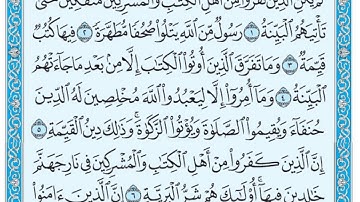 لَمْ يَكُنِ ٱلَّذِينَ كَفَرُوا۟ مِنْ أَهْلِ ٱلْكِتَٰبِ وَٱلْمُشْرِكِينَ مُنفَكِّينَ حَتَّىٰ
تَأْتِيَهُمُ ٱلْبَيِّنَةُ ١ رَسُولٌ مِّنَ ٱللَّهِ يَتْلُوا۟ صُحُفًا مُّطَهَّرَةً ٢ فِيهَا كُتُبٌ
قَيِّمَةٌ ٣ وَمَا تَفَرَّقَ ٱلَّذِينَ أُوتُوا۟ ٱلْكِتَٰبَ إِلَّا مِنۢ بَعْدِ مَا جَآءَتْهُمُ
ٱلْبَيِّنَةُ ٤ وَمَآ أُمِرُوٓا۟ إِلَّا لِيَعْبُدُوا۟ ٱللَّهَ مُخْلِصِينَ لَهُ ٱلدِّينَ
حُنَفَآءَ وَيُقِيمُوا۟ ٱلصَّلَوٰةَ وَيُؤْتُوا۟ ٱلزَّكَوٰةَ ۚ وَذَٰلِكَ دِينُ ٱلْقَيِّمَةِ ٥
إِنَّ ٱلَّذِينَ كَفَرُوا۟ مِنْ أَهْلِ ٱلْكِتَٰبِ وَٱلْمُشْرِكِينَ فِى نَارِ جَهَنَّمَ
خَٰلِدِينَ فِيهَآ ۚ أُو۟لَٰٓئِكَ هُمْ شَرُّ ٱلْبَرِيَّةِ ٦ إِنَّ ٱلَّذِينَ ءَامَنُوا۟